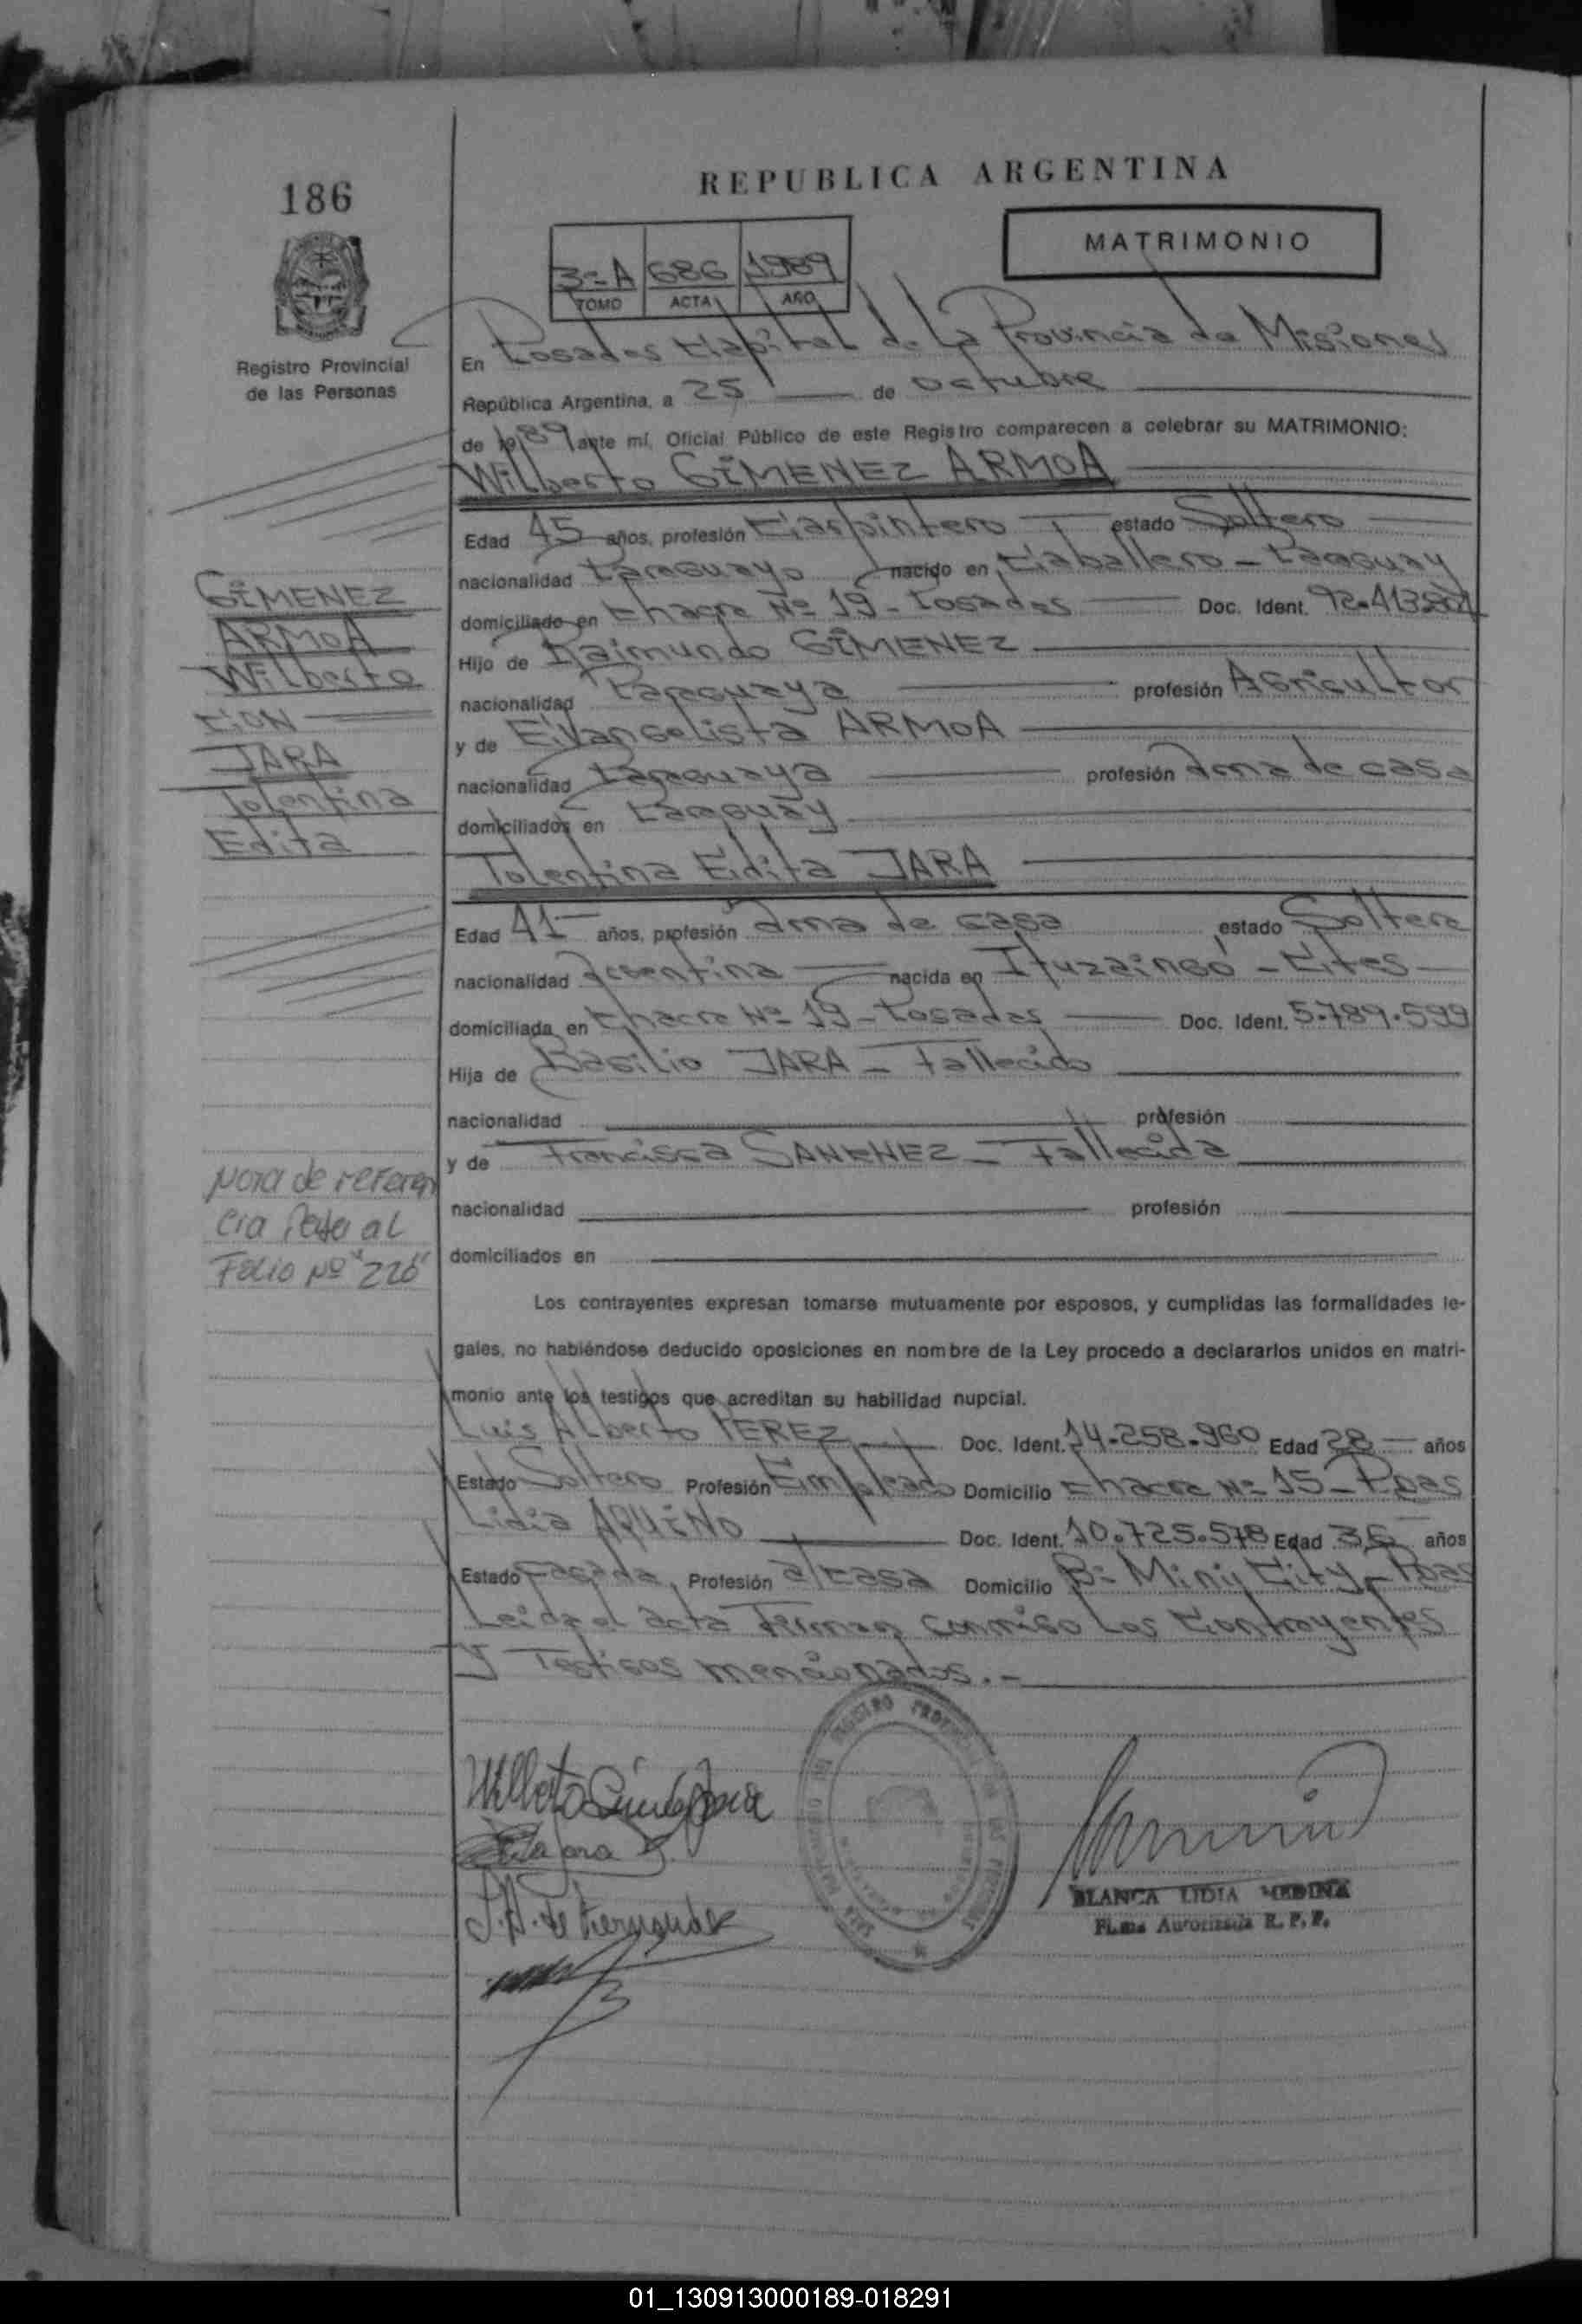 186
REPUBLICA ARGENTINA
MATRIMONIO
3-A 686 1989
TOMO ACTA AÑO
Registro Provincial
de las Personas
En Posadas Capital de La Provincia de Misiones
República Argentina, a 25 de octubre
de 1989 ante mí, Oficial Público de este Registro comparecen a celebrar su MATRIMONIO:
Wilberto GIMENEZ ARMOA
Edad 45 años, profesión Carpintero estado Soltero
nacionalidad Paraguayo nacido en Caballero - Paraguay
domiciliado en Chacra Nº 19 - Posadas Doc. Ident.
Hijo de Raimundo GIMENEZ
nacionalidad Paraguaya profesión Agricultor
y de Evangelista ARMOA
nacionalidad Paraguaya profesión ama de casa
domiciliados en Paraguay
GIMENEZ
ARMOA
Wilberto
CON
JARA
Tolentina
Edita
Tolentina Edita JARA
Edad 41 años, profesión ama de casa estado Soltera
nacionalidad Argentina nacida en Ituzaingó - Ctes
domiciliada en Chacra Nº 19 - Posadas Doc. Ident. 5.789.599
Hija de Basilio JARA - Fallecido
nacionalidad profesión
y de Francisca SANCHEZ - Fallecida
nacionalidad profesión
domiciliados en
Nota de referen
cia Pasa al
Folio Nº "226"
Los contrayentes expresan tomarse mutuamente por esposos, y cumplidas las formalidades le-
gales, no habiéndose deducido oposiciones en nombre de la Ley procedo a declararlos unidos en matri-
monio ante los testigos que acreditan su habilidad nupcial.
Luis Alberto PEREZ Doc. Ident. 14.258.960 Edad 28 años
Estado Soltero Profesión Empleado Domicilio Chacra Nº 15 - Pdas
Lidia AQUINO Doc. Ident. 10.725.578 Edad 36 años
Estado Casada Profesión a/casa Domicilio Bº Mini City - Pdas
Leida el acta Firman conmigo Los Contrayentes
y Testigos mencionados.-
REGISTRO PROVINCIAL DE LAS PERSONAS
BLANCA LIDIA MEDINA
Firma Autorizada R. P. P.
01_130913000189-018291